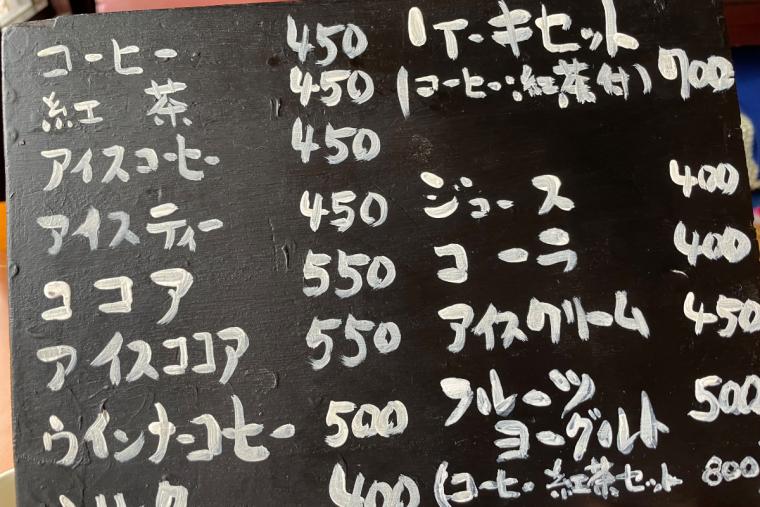 コーヒー 450
紅茶 450
アイスコーヒー 450
アイスティー 450
ココア 550
アイスココア 550
ウインナーコーヒー 500
400
ケーキセット
(コーヒー:紅茶付) 700
ジュース 400
コーラ 400
アイスクリーム 450
フルーツ
ヨーグルト 500
(コーヒー 紅茶セット 800